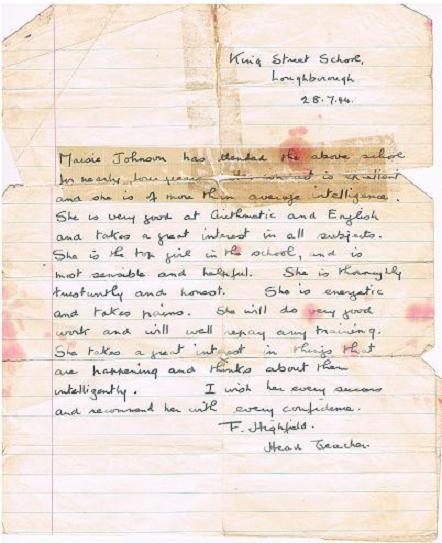 King Street School,
Loughborough
28.7.44.
Maisie Johnson has attended the above school
for nearly four years. Her conduct is excellent
and she is of more than average intelligence.
She is very good at Arithmetic and English
and takes a great interest in all subjects.
She is the top girl in the school, and is
most sensible and helpful. She is thoroughly
trustworthy and honest. She is energetic
and takes pains. She will do very good
work and will well repay any training.
She takes a great interest in things that
are happening and thinks about them
intelligently. I wish her every success
and recommend her with every confidence.
F. Highfield.
Head Teacher.